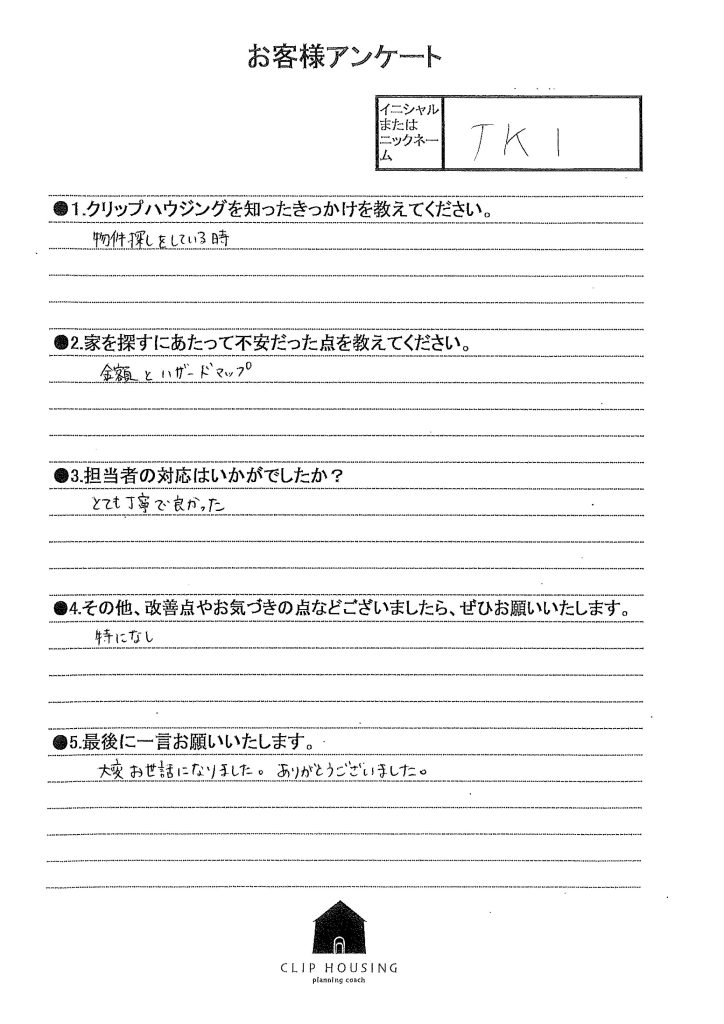 お客様アンケート
イニシャル
または
ニックネー
ム
TK1
●1.クリップハウジングを知ったきっかけを教えてください。
物件探しをしている時
●2.家を探すにあたって不安だった点を教えてください。
金額とハザードマップ
●3.担当者の対応はいかがでしたか？
とても丁寧で良かった
●4.その他、改善点やお気づきの点などございましたら、ぜひお願いいたします。
特になし
●5.最後に一言お願いいたします。
大変お世話になりました。ありがとうございました。
CLIP HOUSING
planning coach